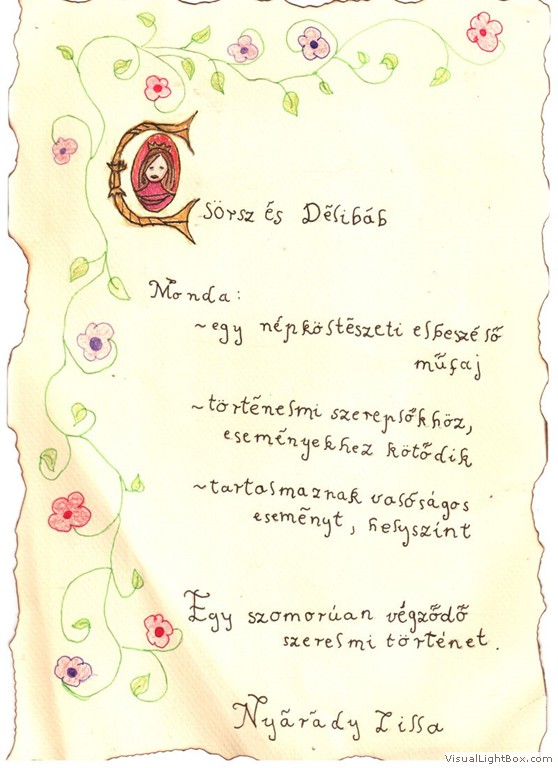 Csörsz és Délibáb
Monda:
~egy népköltészeti elbeszélő
műfaj
~történelmi szereplőkhöz,
eseményekhez kötődik
~tartalmaznak valóságos
eseményt, helyszínt
Egy szomorúan végződő
szerelmi történet.
Nyárády Lilla
VisualLightBox.com